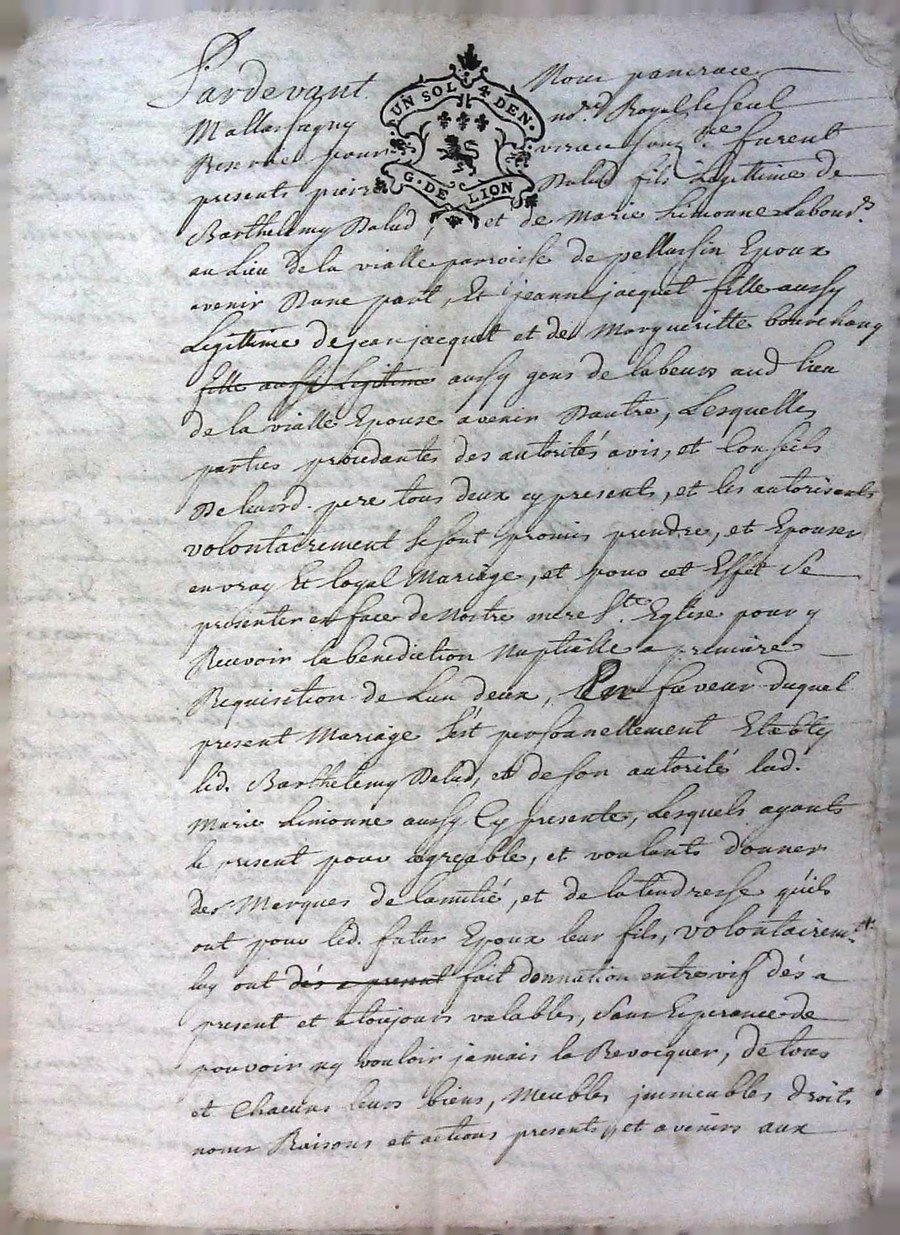 Pardevant Nous pancrace
UN SOL 4 DEN.
G. DE LION
Mallassagny no.re Royal le seul
Reservé pour virieu souz.né furent
presents pierre Dalud fils Legittime de
Barthelemy Dalud, et de Marie Limonne Labour.rs
au Lieu de la vialle parroisse de pellussin Epoux
avenir Dune part, Et jeanne jacquet fille aussy
Legittime de jean jacquet et de Margueritte bourchany
fille aussy Legitime aussy gens de labeurs aud lieu
de la vialle Epouse avenir Dautre, Lesquelles
parties procedantes des autorités avis, et Conseils
De leursd. pere tous deux cy presents, et les autorisants
volontairement se sont promis prendre, et Epouser
en vray Et loyal Mariage, et pour cet Effet se
presenter en face de Nostre mere S.te Eglise pour y
Recevoir la benediction Nuptielle a premiere
Requisition de Lun deux, En faveur duquel
present Mariage s'est personnellement Etably
led. Barthelemy Dalud, et de son autorité lad.
Marie Limonne aussy Cy presente, Lesquels ayants
le present pour agreable, et voulants donner
des Marques de lamitié, et de la tendresse qu'ils
ont pour led. futur Epoux leur fils, volontairem.t
luy ont dés a present fait donnation entre vif dés a
present et a toujours valables, sans Esperance de
pouvoir ny vouloir jamais la Revocquer, de tous
et Chacuns leurs biens, Meubles immeubles droits
noms Raisons et actions presents, et avenirs aux